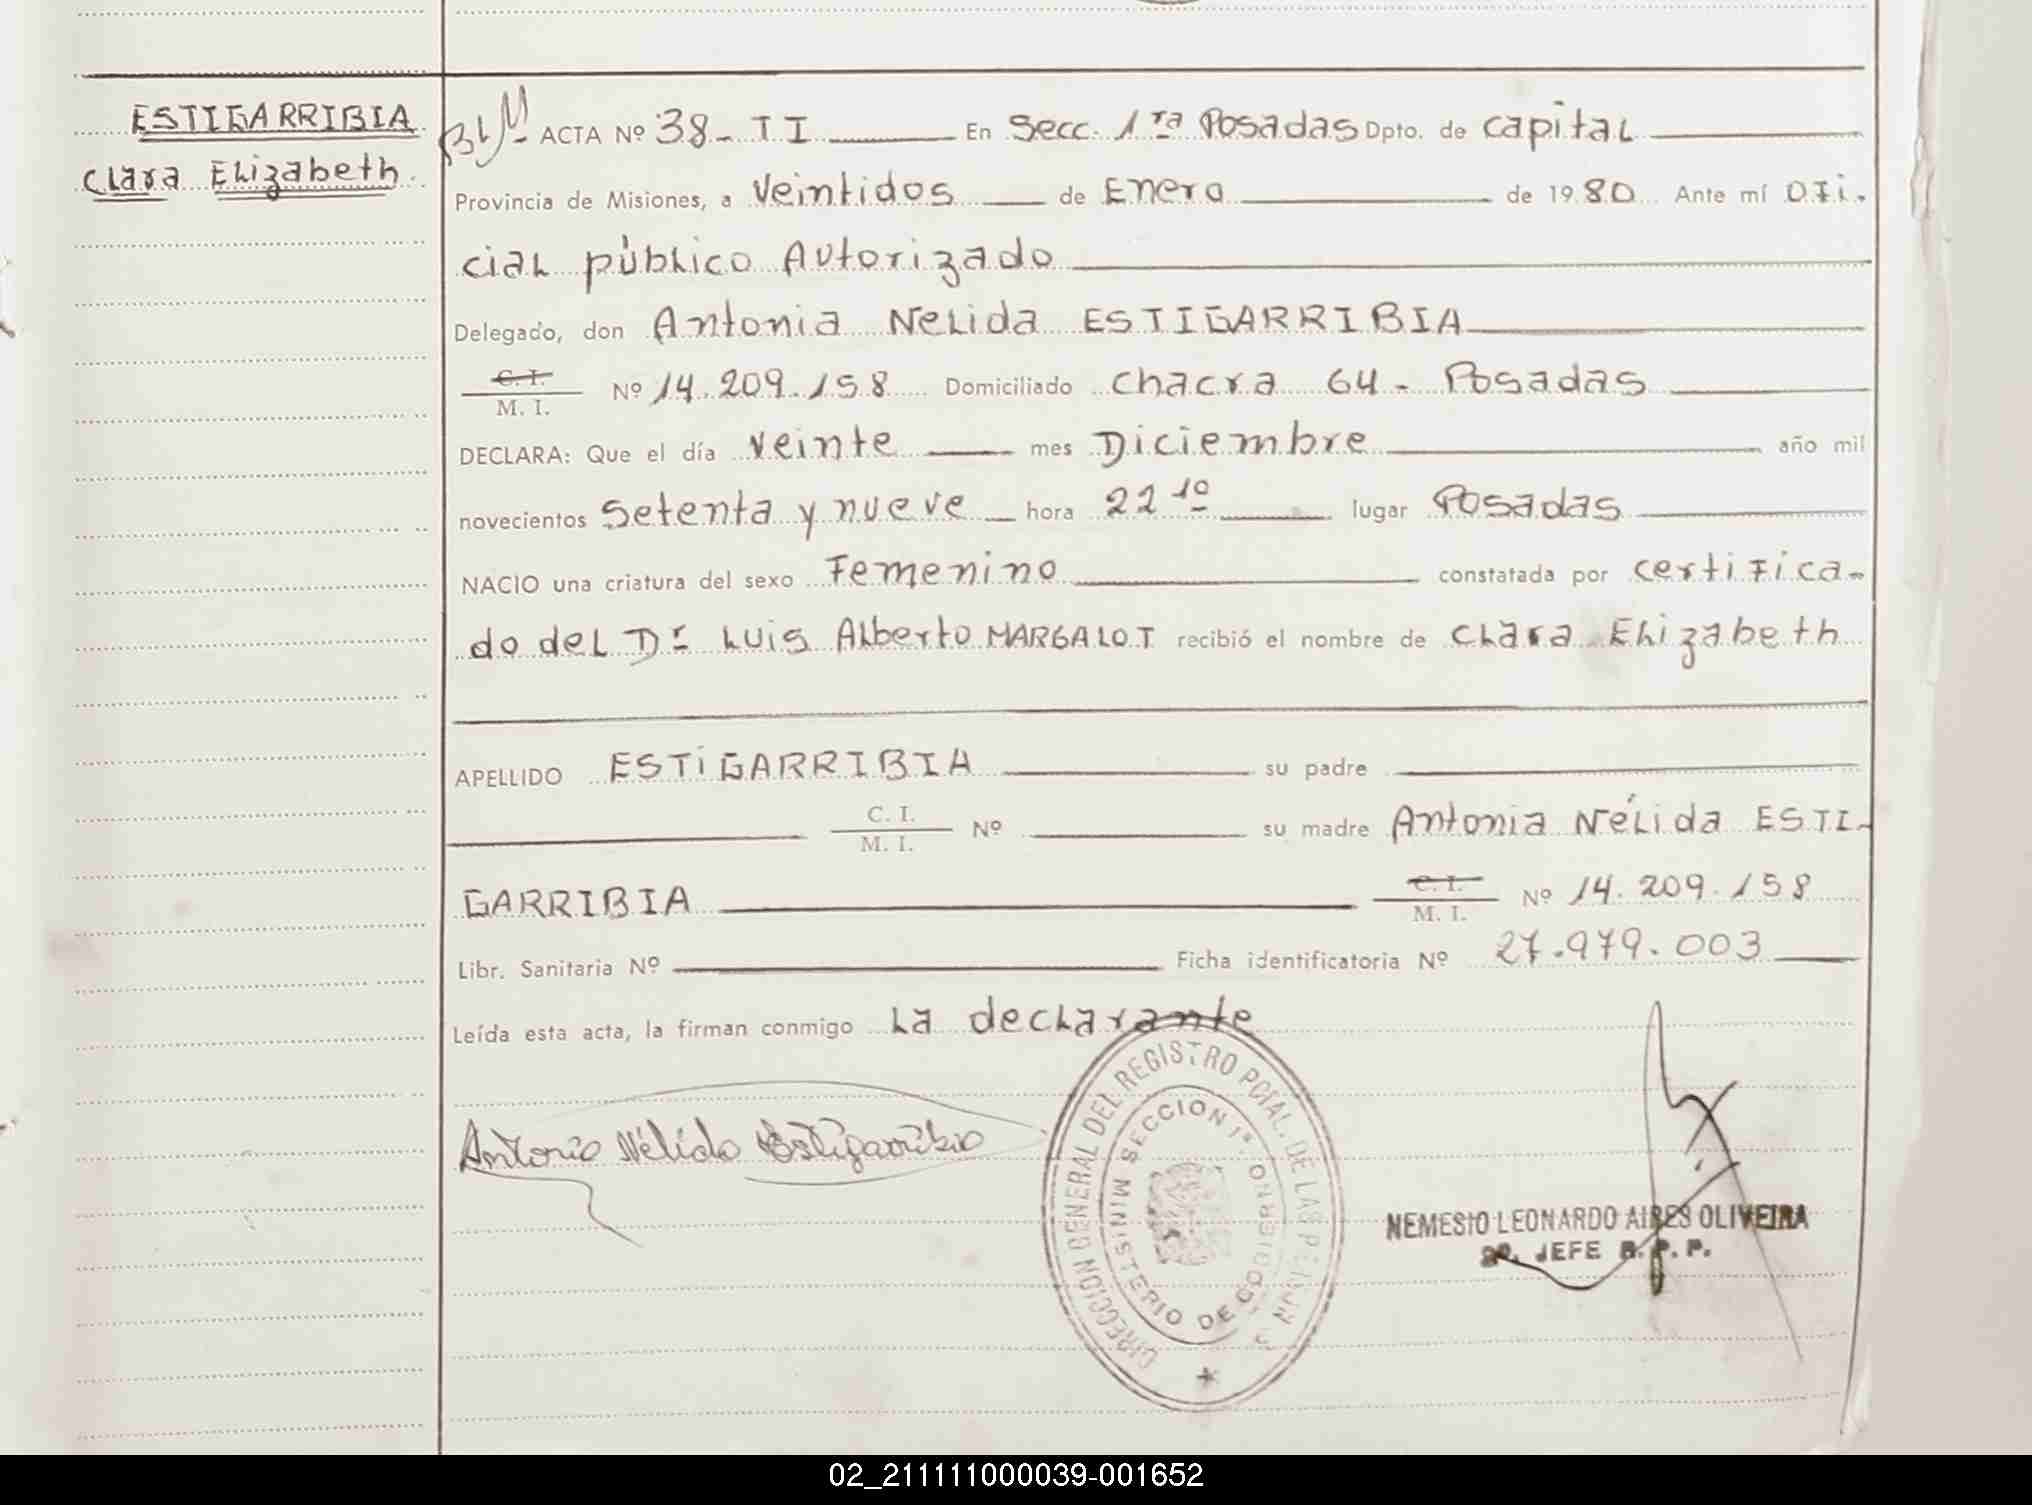 ESTIGARRIBIA
Clara Elizabeth
ACTA Nº 38 - TI En Secc. 1ra Posadas Dpto. de capital
Provincia de Misiones, a Veintidos de Enero de 1980 Ante mí Ofi-
cial público Autorizado
Delegado, don Antonia Nelida ESTIGARRIBIA
C. I.
M. I. Nº 14.209.158 Domiciliado Chacra 64 - Posadas
DECLARA: Que el día Veinte mes Diciembre año mil
novecientos setenta y nueve hora 22 10 lugar Posadas
NACIO una criatura del sexo Femenino constatada por certifica-
do del Dr Luis Alberto MARGALOT recibió el nombre de Clara Elizabeth
APELLIDO ESTIGARRIBIA su padre
C. I.
M. I. Nº su madre Antonia Nélida ESTI-
GARRIBIA C. I.
M. I. Nº 14.209.158
Libr. Sanitaria Nº Ficha identificatoria Nº 27.979.003
Leída esta acta, la firman conmigo La declarante
Antonia Nélida Estigarribia
DIRECCION GENERAL DEL REGISTRO PCIAL. DE LAS PE
MINISTERIO DE GOBIERNO
SECCION 1ª.
NEMESIO LEONARDO AIRES OLIVEIRA
JEFE R. P. P.
02_211111000039-001652